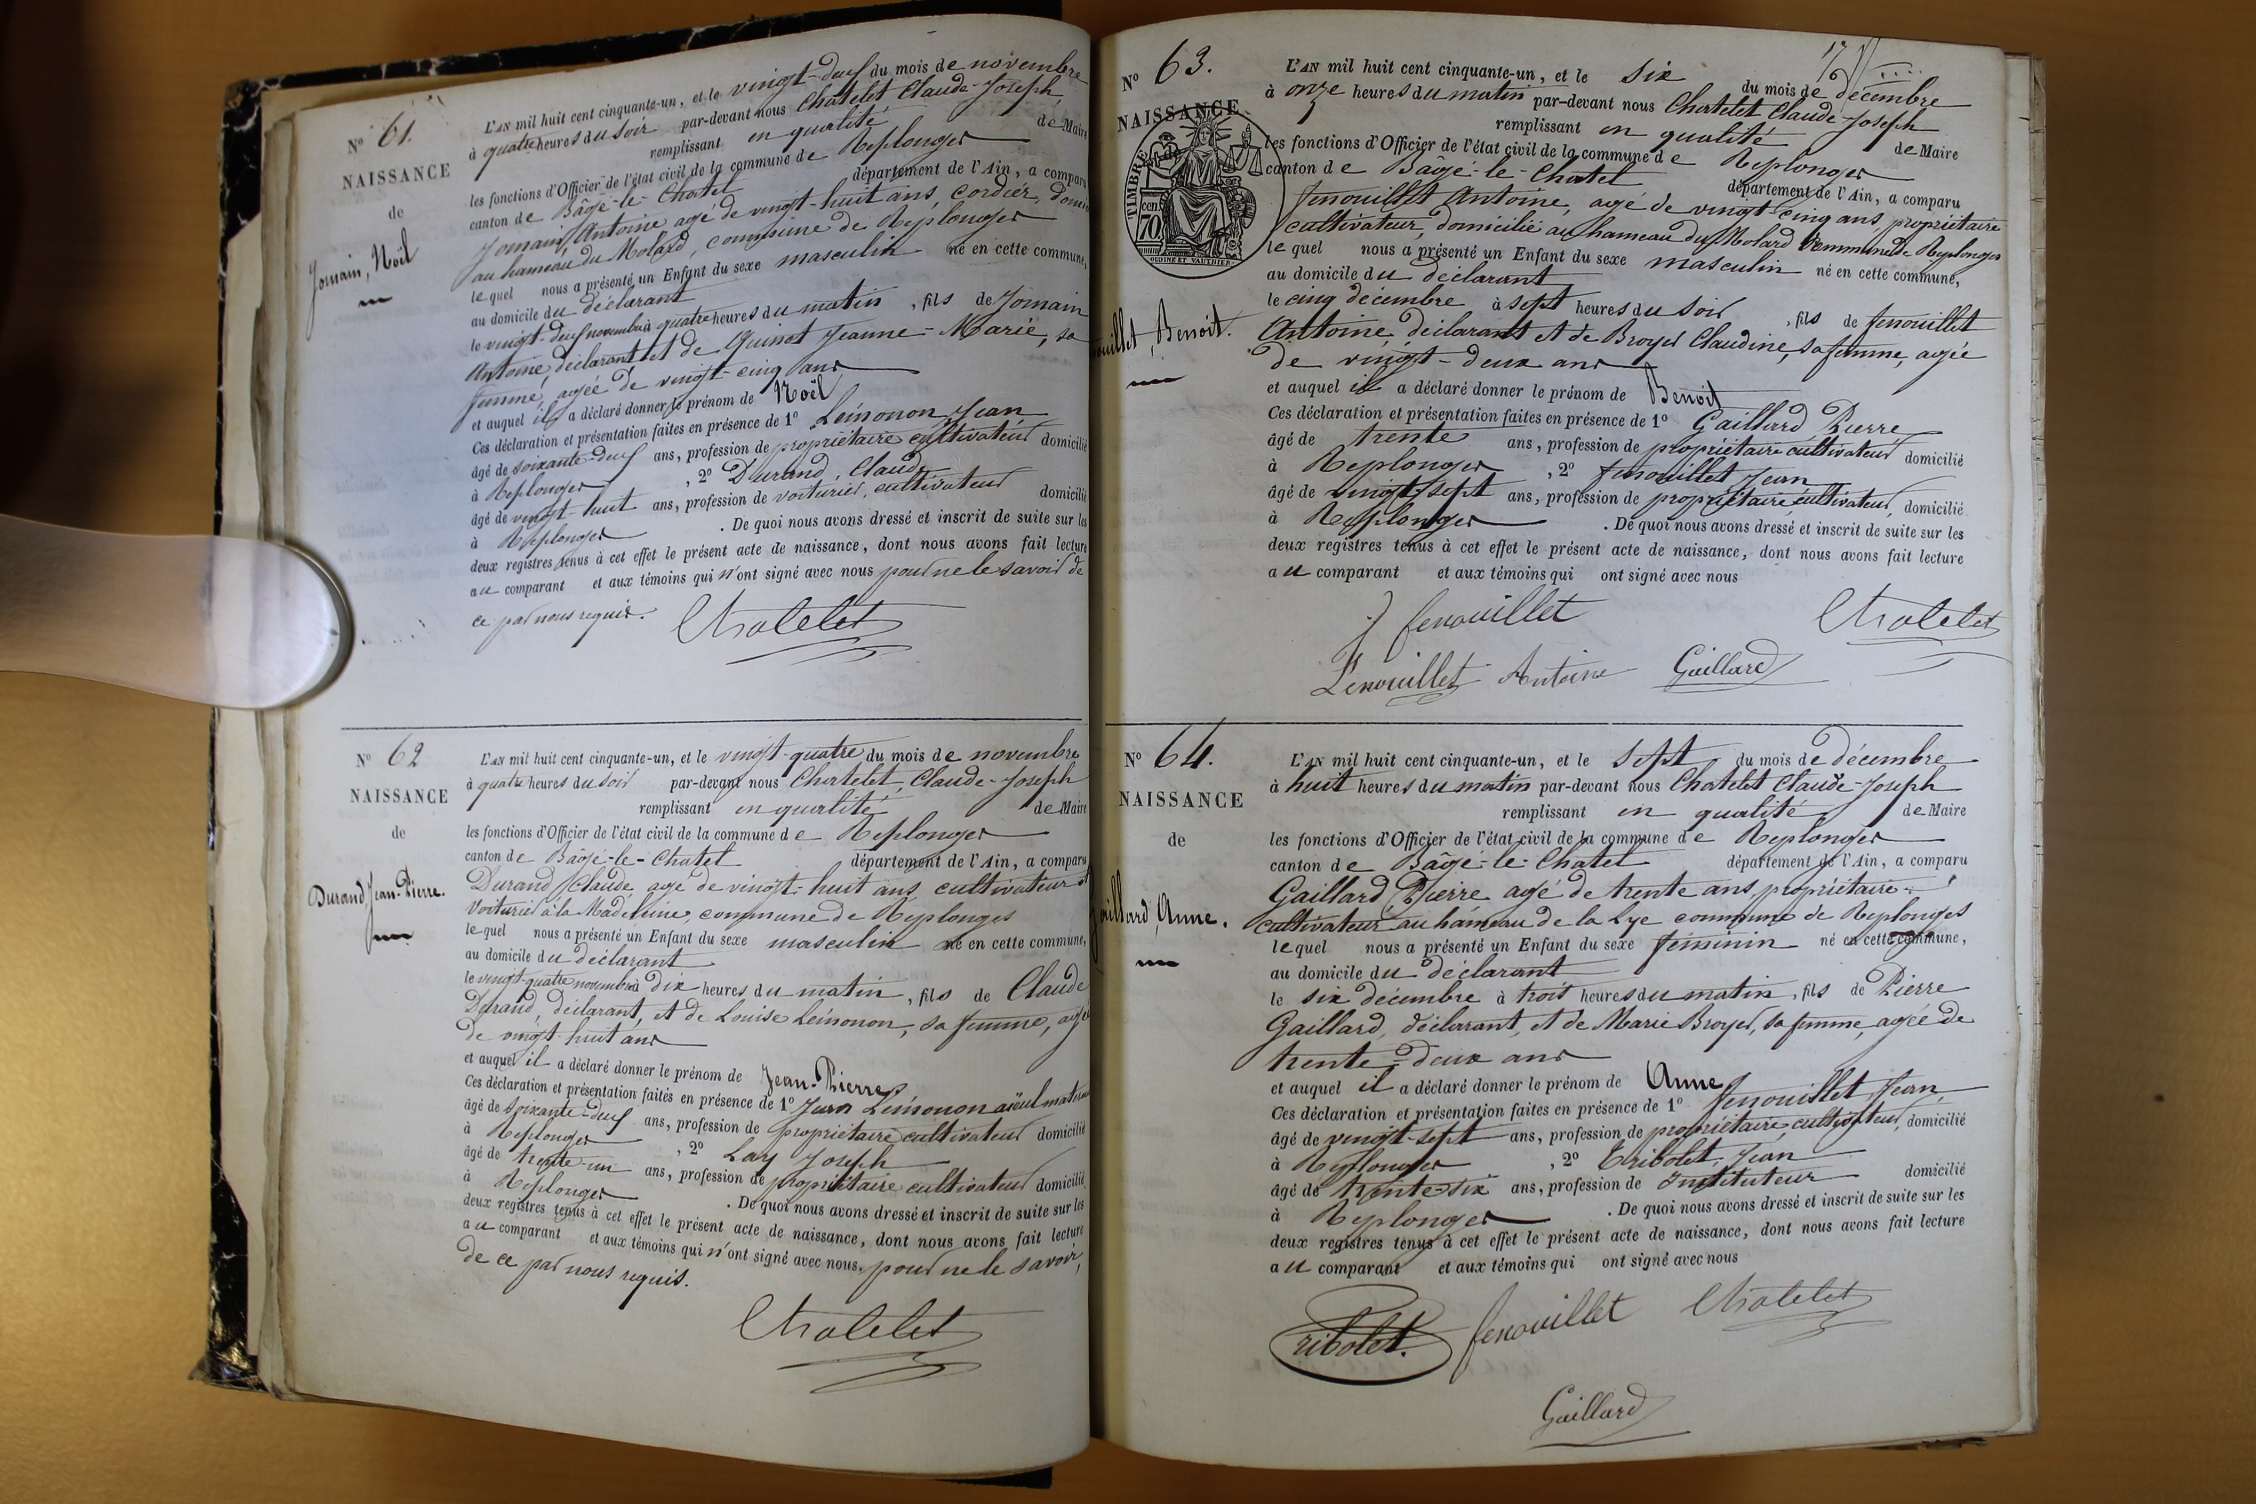 N° 61.
NAISSANCE
de
Jomain, Noël
L'AN mil huit cent cinquante-un, et le vingt-deux du mois de novembre
à quatre heures du soir par-devant nous Chatelet Claude-Joseph
remplissant en qualité de Maire
les fonctions d'Officier de l'état civil de la commune de Replonges
canton de Bâgé-le-Chatel département de l'Ain, a comparu
Jomain, Antoine agé de vingt-huit ans, cordier, domi
au hameau du Molard, commune de Replonges
lequel nous a présenté un Enfant du sexe masculin né en cette commune,
au domicile du déclarant
le vingt-deux novembre à quatre heures du matin, fils de Jomain
Antoine, déclarant, et de Guinet Jeanne-Marie, sa
femme, agée de vingt-cinq ans
et auquel il a déclaré donner le prénom de Noël
Ces déclaration et présentation faites en présence de 1° Lémonon, Jean
âgé de soixante-deux ans, profession de propriétaire cultivateur domicilié
à Replonges, 2° Durand, Claude
âgé de vingt-huit ans, profession de voiturier, cultivateur domicilié
à Replonges. De quoi nous avons dressé et inscrit de suite sur les
deux registres tenus à cet effet le présent acte de naissance, dont nous avons fait lecture
au comparant et aux témoins qui n'ont signé avec nous pour ne le savoir de
ce par nous requis.
Chatelet
N° 62
NAISSANCE
de
Durand, Jean-Pierre.
L'AN mil huit cent cinquante-un, et le vingt-quatre du mois de novembre
à quatre heures du soir par-devant nous Chatelet, Claude-Joseph
remplissant en qualité de Maire
les fonctions d'Officier de l'état civil de la commune de Replonges
canton de Bâgé-le-Chatel département de l'Ain, a comparu
Durand, Claude, agé de vingt-huit ans, cultivateur et
voiturier à la Madeleine, commune de Replonges
lequel nous a présenté un Enfant du sexe masculin né en cette commune,
au domicile du déclarant
le vingt-quatre novembre à dix heures du matin, fils de Claude
Durand, déclarant, et de Louise Lémonon, sa femme, agée
de vingt-huit ans
et auquel il a déclaré donner le prénom de Jean-Pierre
Ces déclaration et présentation faites en présence de 1° Jean Lémonon aïeul maternel
âgé de soixante-deux ans, profession de propriétaire cultivateur domicilié
à Replonges, 2° Lay Joseph
âgé de trente-un ans, profession de propriétaire cultivateur domicilié
à Replonges. De quoi nous avons dressé et inscrit de suite sur les
deux registres tenus à cet effet le présent acte de naissance, dont nous avons fait lecture
au comparant et aux témoins qui n'ont signé avec nous, pour ne le savoir,
de ce par nous requis.
Chatelet
17
N° 63.
NAISSANCE
TIMBRE
70 cen
OUDINE ET VAUTHIER
ouillet, Benoit.
L'AN mil huit cent cinquante-un, et le six du mois de décembre
à onze heures du matin par-devant nous Chatelet Claude-Joseph
remplissant en qualité de Maire
les fonctions d'Officier de l'état civil de la commune de Replonges
canton de Bâgé-le-Chatel département de l'Ain, a comparu
fenouillet Antoine, agé de vingt-cinq ans, propriétaire
cultivateur, domicilié au hameau du Molard commune de Replonges
lequel nous a présenté un Enfant du sexe masculin né en cette commune,
au domicile du déclarant
le cinq décembre à sept heures du soir, fils de fenouillet
Antoine, déclarant et de Broyer Claudine, sa femme, agée
de vingt-deux ans
et auquel il a déclaré donner le prénom de Benoit
Ces déclaration et présentation faites en présence de 1° Gaillard Pierre
âgé de trente ans, profession de propriétaire cultivateur domicilié
à Replonges, 2° fenouillet Jean
âgé de vingt-sept ans, profession de propriétaire cultivateur, domicilié
à Replonges. De quoi nous avons dressé et inscrit de suite sur les
deux registres tenus à cet effet le présent acte de naissance, dont nous avons fait lecture
au comparant et aux témoins qui ont signé avec nous
J fenouillet Chatelet
Fenouillet Antoine Gaillard
N° 64.
NAISSANCE
de
aillard, Anne.
L'AN mil huit cent cinquante-un, et le sept du mois de décembre
à huit heures du matin par-devant nous Chatelet Claude-Joseph
remplissant en qualité de Maire
les fonctions d'Officier de l'état civil de la commune de Replonges
canton de Bâgé-le-Chatel département de l'Ain, a comparu
Gaillard, Pierre agé de trente ans, propriétaire-
cultivateur au hameau de la Lye commune de Replonges
lequel nous a présenté un Enfant du sexe féminin né en cette commune,
au domicile du déclarant
le six décembre à trois heures du matin, fils de Pierre
Gaillard, déclarant, et de Marie Broyer, sa femme, agée de
trente-deux ans
et auquel il a déclaré donner le prénom de Anne
Ces déclaration et présentation faites en présence de 1° fenouillet, Jean,
âgé de vingt-sept ans, profession de propriétaire, cultivateur, domicilié
à Replonges, 2° Tribolet, Jean
âgé de trente-six ans, profession de instituteur domicilié
à Replonges. De quoi nous avons dressé et inscrit de suite sur les
deux registres tenus à cet effet le présent acte de naissance, dont nous avons fait lecture
au comparant et aux témoins qui ont signé avec nous
Tribolet. fenouillet Chatelet
Gaillard